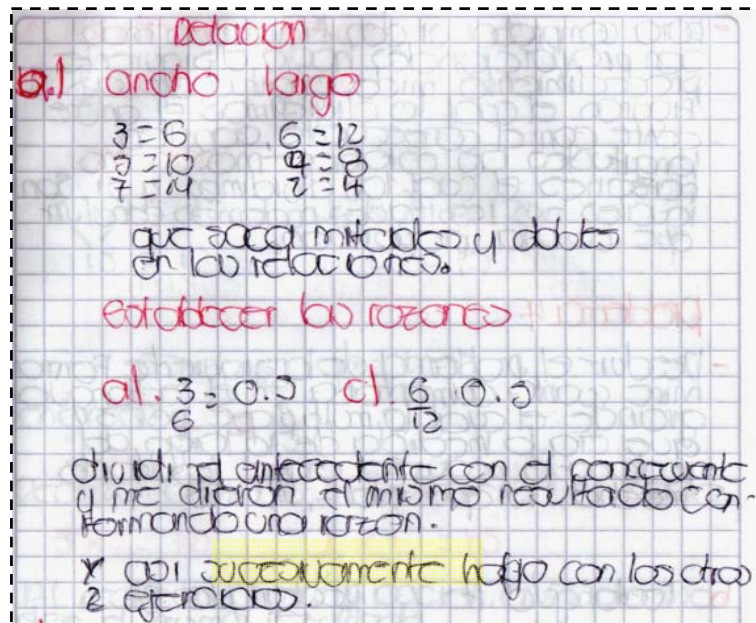 Relacion
a.) ancho largo
3=6 6=12
5=10 4=8
7=14 2=4
que saca mitades y dobles
en las relaciones.
establecer las razones
a). 3/6 = 0.5 c). 6/12 0.5
dividi el antecedente con el consecuente
y me dieron el mismo resultado con-
formando una razon.
y asi sucesivamente hafgo con los otros
2 ejercicios.